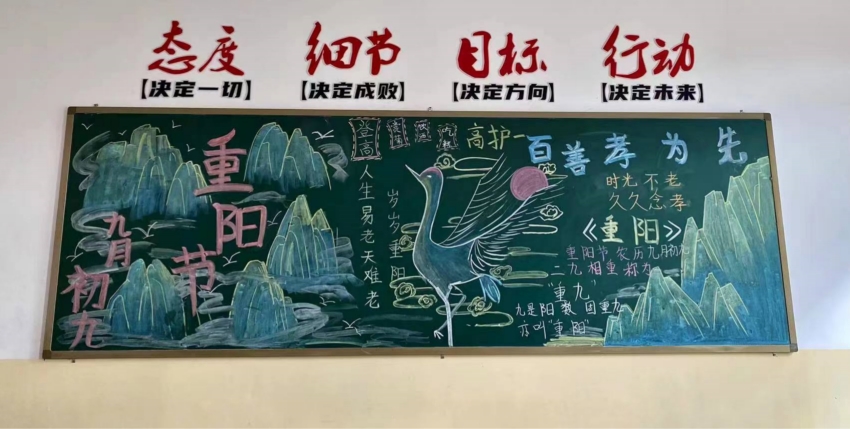 态度 细节 目标 行动
【决定一切】 【决定成败】 【决定方向】 【决定未来】
重阳节
九月初九
登高
赏菊
吃糕
人生易老天难老
岁岁重阳
高护一
百善孝为先
时光不老
久久念孝
《重阳》
重阳节农历九月初九
二九相重称为
"重九"
九是阳数 因重九
亦叫"重阳"